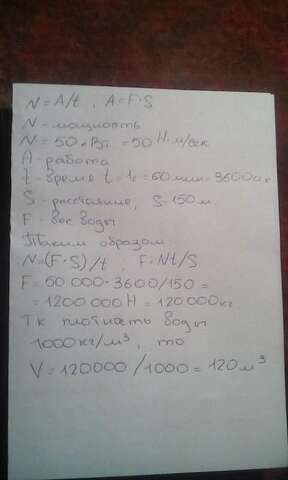 N=A/t, A=F·S
N-мощность
N=50кВт=50 Н·м/сек
A-работа
t-время t=1ч=60мин=3600сек
S-расстояние, S=150м.
F-вес воды
Таким образом
N=(F·S)/t, F=Nt/S
F=50000·3600/150=
=1200000Н=120000кг
Тк плотность воды
1000кг/м³, то
V=120000/1000=120м³